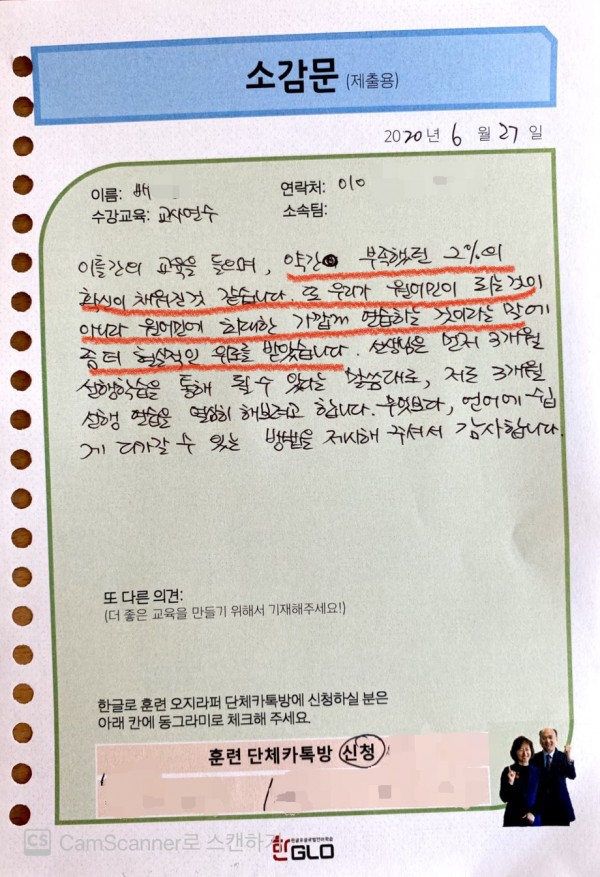 소감문 (제출용)
2020년 6월 27일
이름: 배
연락처: 010
수강교육: 교사연수
소속팀:
이틀간의 교육을 들으며, 약간 부족했던 2%의
확신이 채워진것 같습니다. 또 우리가 원어민이 되는것이
아니라 원어민에 최대한 가깝게 연습하는 것이라는 말에
좀더 현실적인 위로를 받았습니다. 선생님은 먼저 3개월
선행학습을 통해 될수 있다는 말씀대로, 저도 3개월
선행 연습을 열심히 해보려고 합니다. 무엇보다, 언어에 쉽
게 다가갈 수 있는 방법을 제시해 주셔서 감사합니다.
또 다른 의견:
(더 좋은 교육을 만들기 위해서 기재해주세요!)
한글로 훈련 오지라퍼 단체카톡방에 신청하실 분은
아래 칸에 동그라미로 체크해 주세요.
훈련 단체카톡방 신청
CS CamScanner로 스캔하기
한GLO